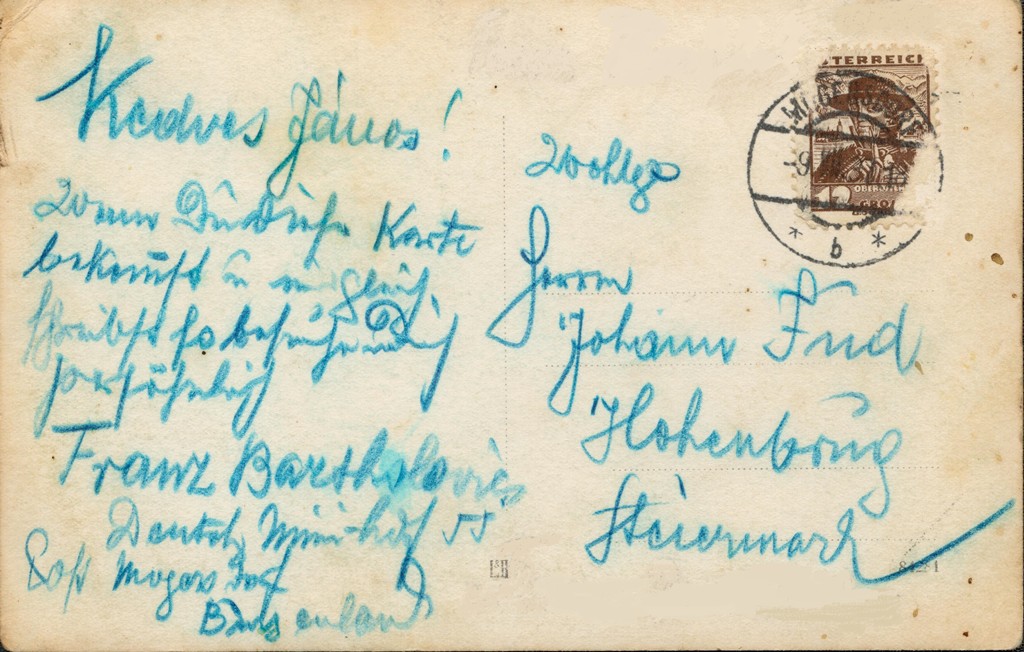 Kedves János!
Wenn Du diese Karte
bekommst u mir gleich
schreibst so besuche mich
persöhnlich
Franz Bartholovics
Deutsch Minihof 55
Post Mogersdorf
Burgenland
Wohlg
Herrn
Johann Fud.
Hohenbrug
Steiermark
STERREICH
12
GROS
b
8121